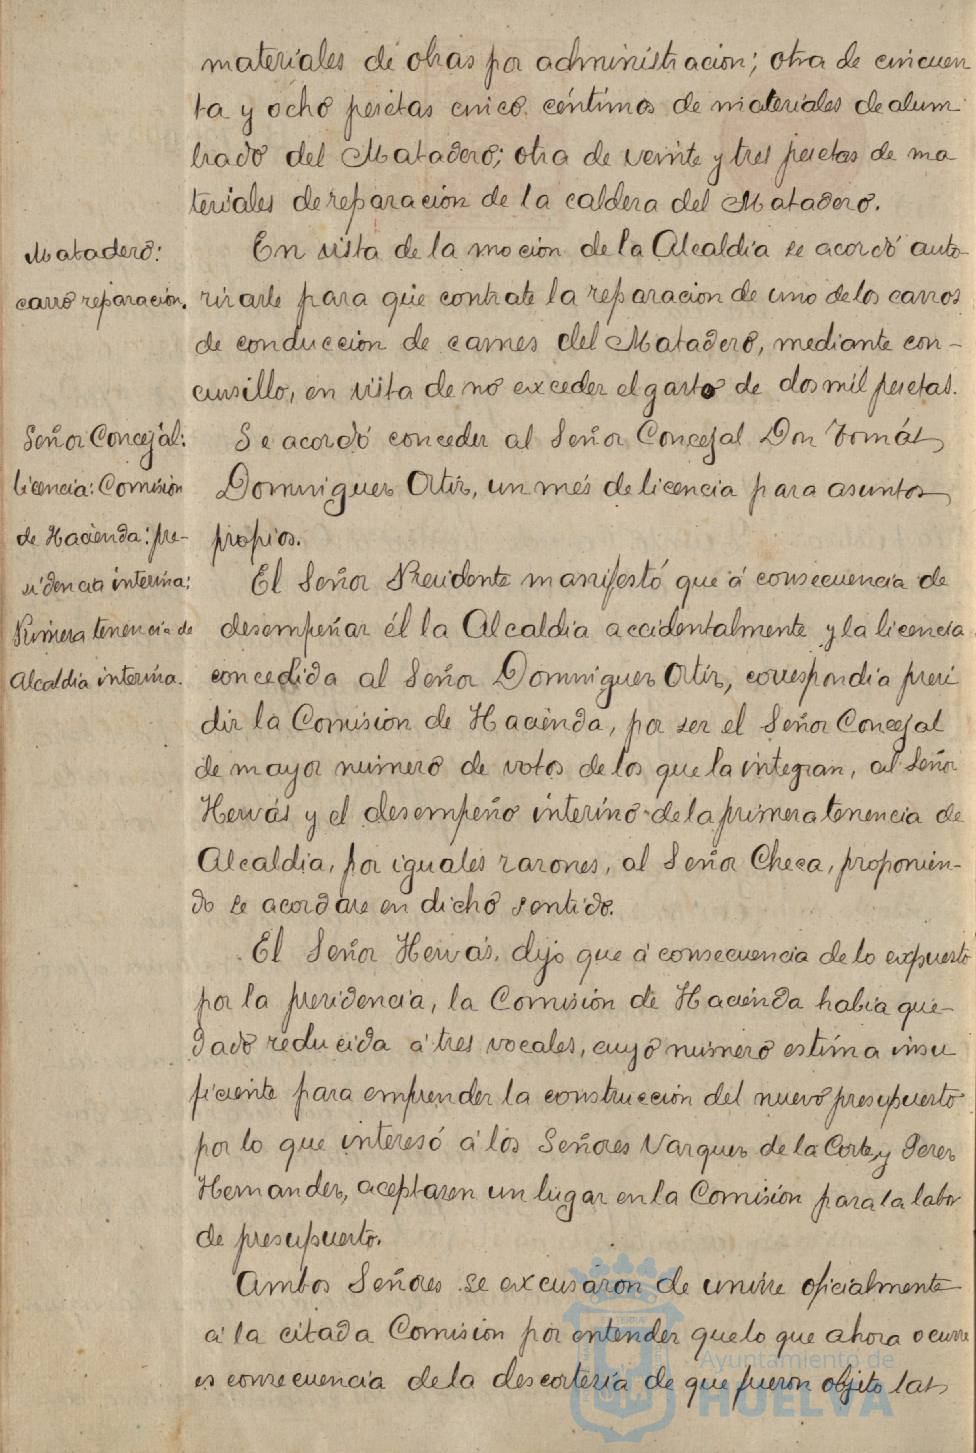 materiales de obras por administración; otra de cincuen
ta y ocho pesetas cinco céntimos de materiales de alum
brado del Matadero; otra de veinte y tres pesetas de ma
teriales de reparación de la caldera del Matadero.
Matadero:
carro reparación.
En vista de la moción de la Alcaldia se acordó auto-
rizarle para que contrate la reparacion de uno de los carros
de conducción de carnes del Matadero, mediante con-
cursillo, en vista de no exceder el gasto de dos mil pesetas.
Señor Concejal:
licencia: Comisión
de Hacienda: pre-
sidencia interina:
Primera tenencia de
Alcaldia interina.
Se acordó conceder al Señor Concejal Don Tomás
Dominguez Ortiz, un més de licencia para asuntos
propios.
El Señor Presidente manifestó que á consecuencia de
desempeñar él la Alcaldia accidentalmente y la licencia
concedida al Señor Dominguez Ortiz, correspondia presi
dir la Comision de Hacienda, por ser el Señor Concejal
de mayor número de votos de los que la integran, al Señor
Hervás y el desempeño interino de la primera tenencia de
Alcaldia, por iguales razones, al Señor Checa, proponien-
do se acordase en dicho sentido.
El Señor Hervás, dijo que á consecuencia de lo expuesto
por la presidencia, la Comisión de Hacienda habia que-
dado reducida á tres vocales, cuyo número estima insu
ficiente para emprender la construcción del nuevo presupuesto
por lo que interesó á los Señores Vazquez de la Corte y Perez
Hernandez, aceptasen un lugar en la Comisión para la labor
de presupuesto.
Ambos Señores se excusaron de unirse oficialmente
á la citada Comisión por entender que lo que ahora ocurre
es consecuencia de la descortesia de que fueron objeto las
Ayuntamiento de
HUELVA